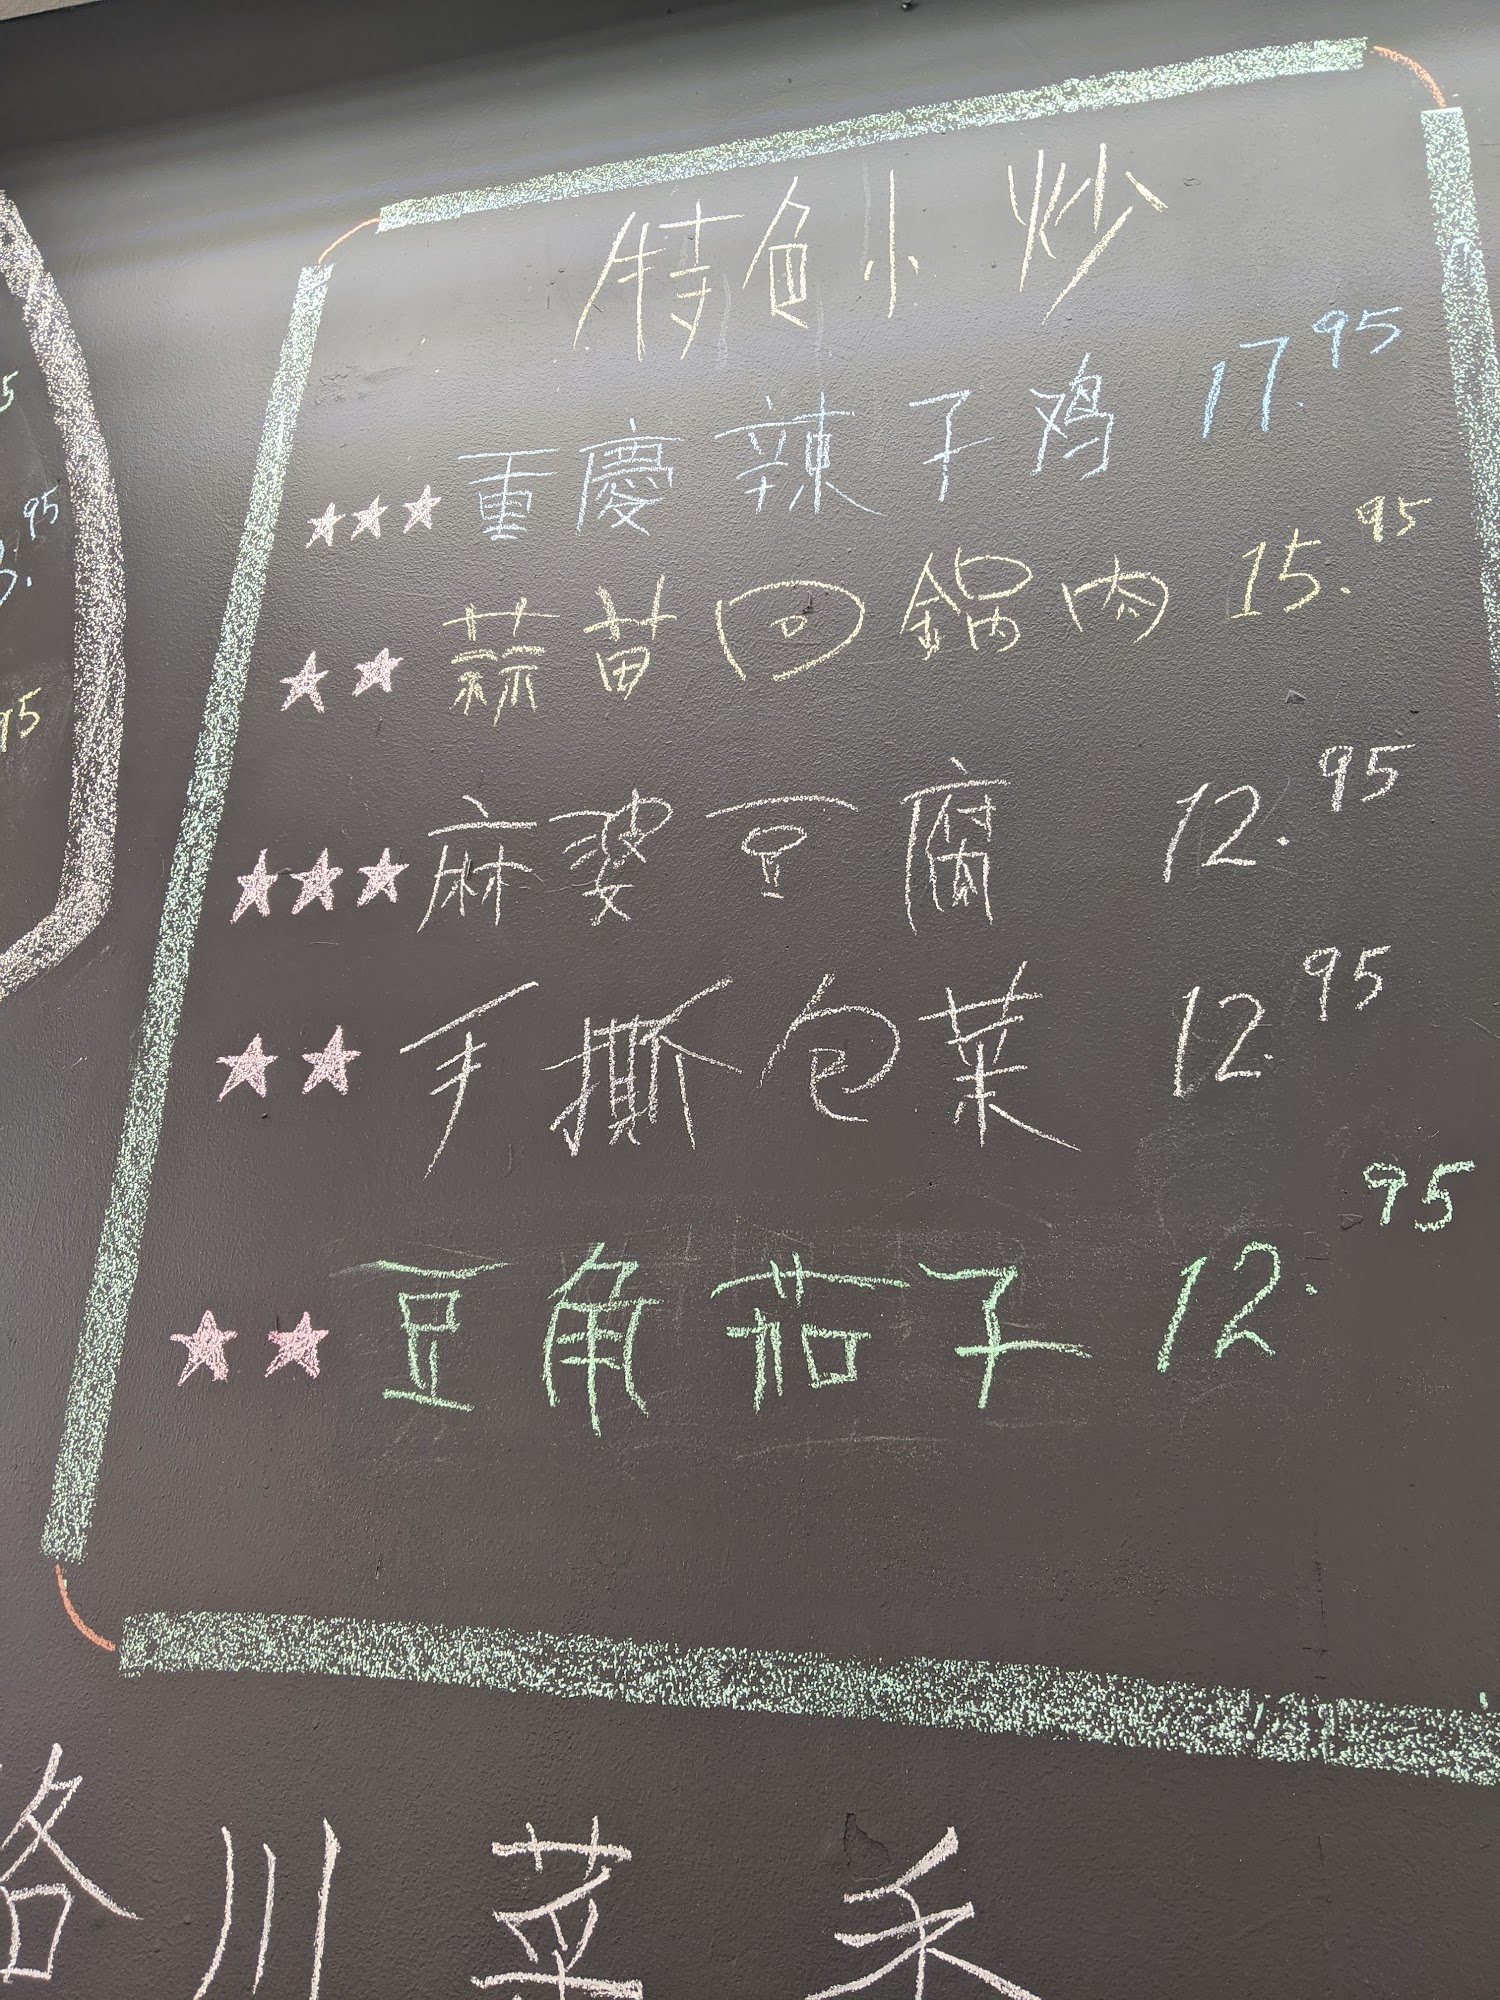 特色小炒
★★★重慶辣子鸡 17.95
★★蒜苗回鍋肉 15.95
★★★麻婆豆腐 12.95
★★手撕包菜 12.95
★★豆角茄子 12.95
川菜
95
95